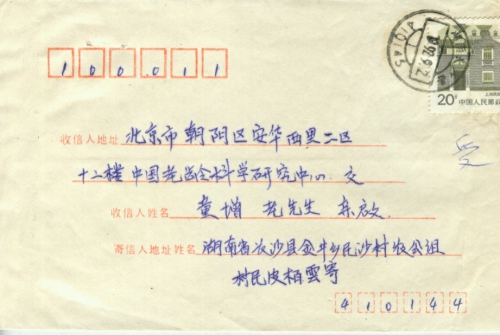 100011
20分
中国人民邮政
收信人地址 北京市朝阳区安华西里二区
十二楼中国老龄科学研究中心 交
收信人姓名 童增 老先生 亲启
寄信人地址姓名 湖南省长沙县金井乡民沙村农公组
村民皮栢雲寄
410144